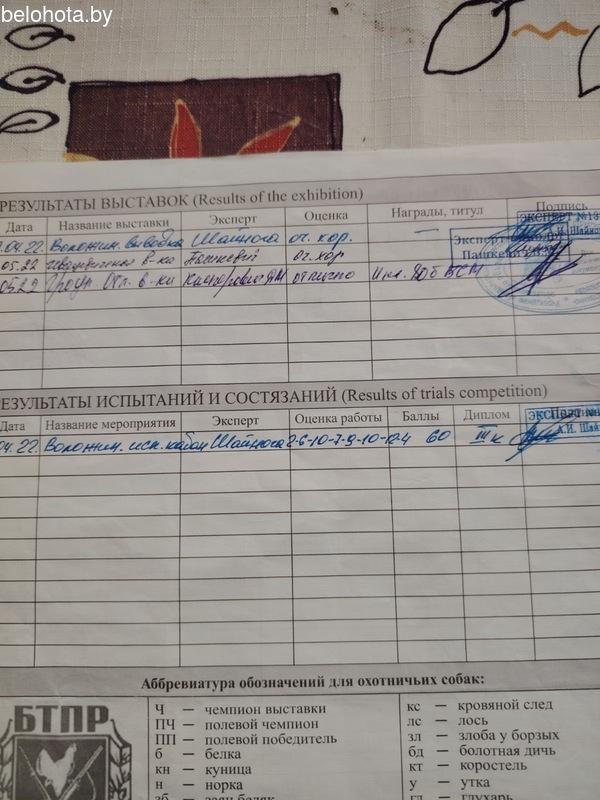 belohota.by
РЕЗУЛЬТАТЫ ВЫСТАВОК (Results of the exhibition)
Дата Название выставки Эксперт Оценка Награды, титул Подпись
.04.22. Воложин. выводка Шайнога оч. хор. —
05.22 в-ка Пашкевич оч. хор
05.22 Отл. в-ки отлично
ЭКСПЕРТ №13
Эксперт
Пашкевич
РЕЗУЛЬТАТЫ ИСПЫТАНИЙ И СОСТЯЗАНИЙ (Results of trials competition)
Дата Название мероприятия Эксперт Оценка работы Баллы Диплом
04.22. Воложин. исп. кабан Шайнога 60 III к
ЭКСПЕРТ
А.И. Шай
Аббревиатура обозначений для охотничьих собак:
БТПР
Ч — чемпион выставки
ПЧ — полевой чемпион
ПП — полевой победитель
б — белка
кн — куница
н — норка
зб — заяц беляк
кс — кровяной след
лс — лось
зл — злоба у борзых
бд — болотная дичь
кт — коростель
у — утка
гл — глухарь